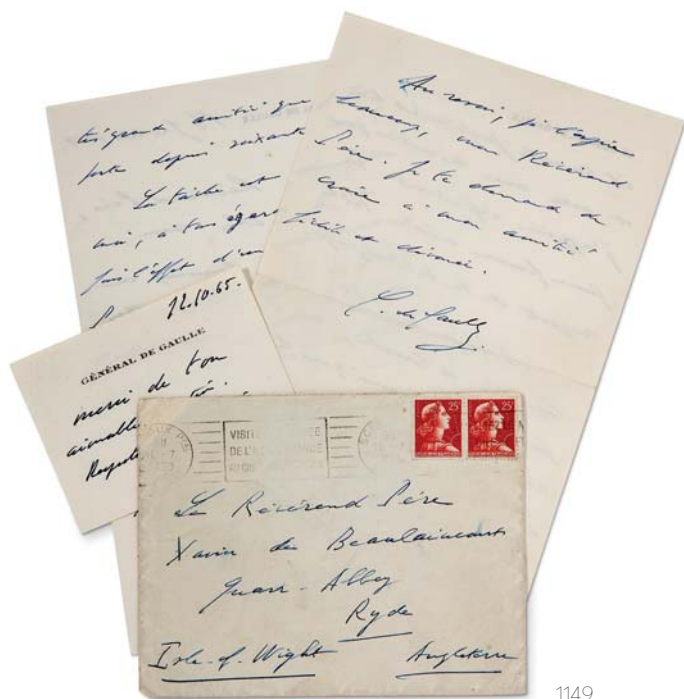 très grande amitié que
porte depuis soixante
La tâche est
moi, à ton égard
fait l'effet
Au revoir, j'espère
beaucoup, mon Révérend
Père. Je te demande de
croire à mon amitié
fidèle et dévouée.
C. de Gaulle
12.10.65.
GÉNÉRAL DE GAULLE
merci de ton
aimable
VISITE
DE L'
AU
25F
25F
Le Révérend Père
Xavier de Beaulaincourt
Quarr-Abbey
Ryde
Isle-of-Wight Angleterre
1149